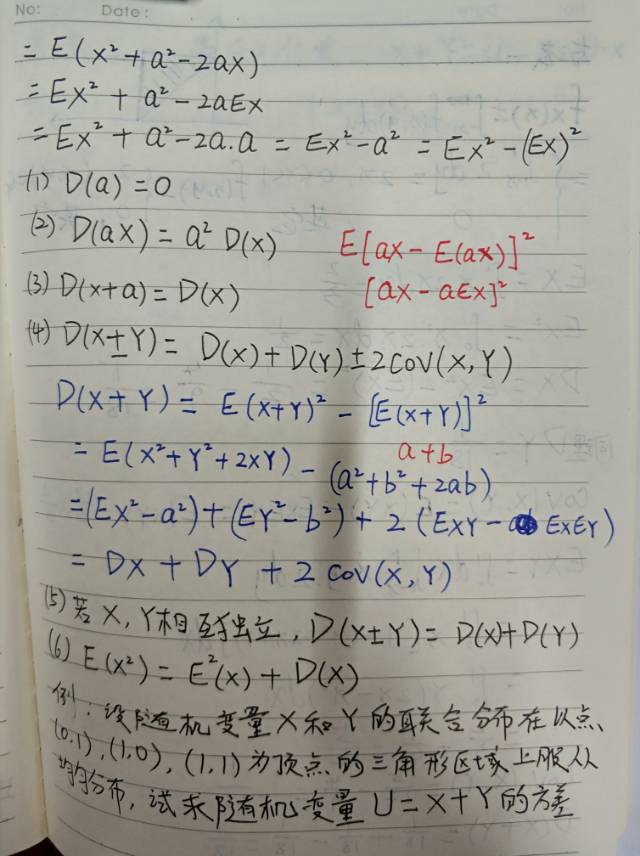 No: Date:
= E(x²+a²-2ax)
= Ex² + a² - 2aEx
= Ex² + a² - 2a.a = Ex² - a² = Ex² - (Ex)²
(1) D(a) = 0
(2) D(ax) = a² D(x) E[ax - E(ax)]²
(3) D(x+a) = D(x) [ax - aEx]²
(4) D(X±Y) = D(x) + D(Y) ± 2COV(X,Y)
D(X+Y) = E(x+Y)² - [E(x+Y)]²
= E(x²+Y²+2xY) - (a²+b²+2ab) a+b
= (Ex²-a²) + (EY²-b²) + 2(EXY - EXEY)
= DX + DY + 2COV(X,Y)
(5) 若X,Y相互独立, D(X±Y) = D(x)+D(Y)
(6) E(x²) = E²(x) + D(X)
例: 设随机变量X和Y的联合分布在以点
(0.1), (1,0), (1,1)为顶点的三角形区域上服从
均匀分布, 试求随机变量U=X+Y的方差